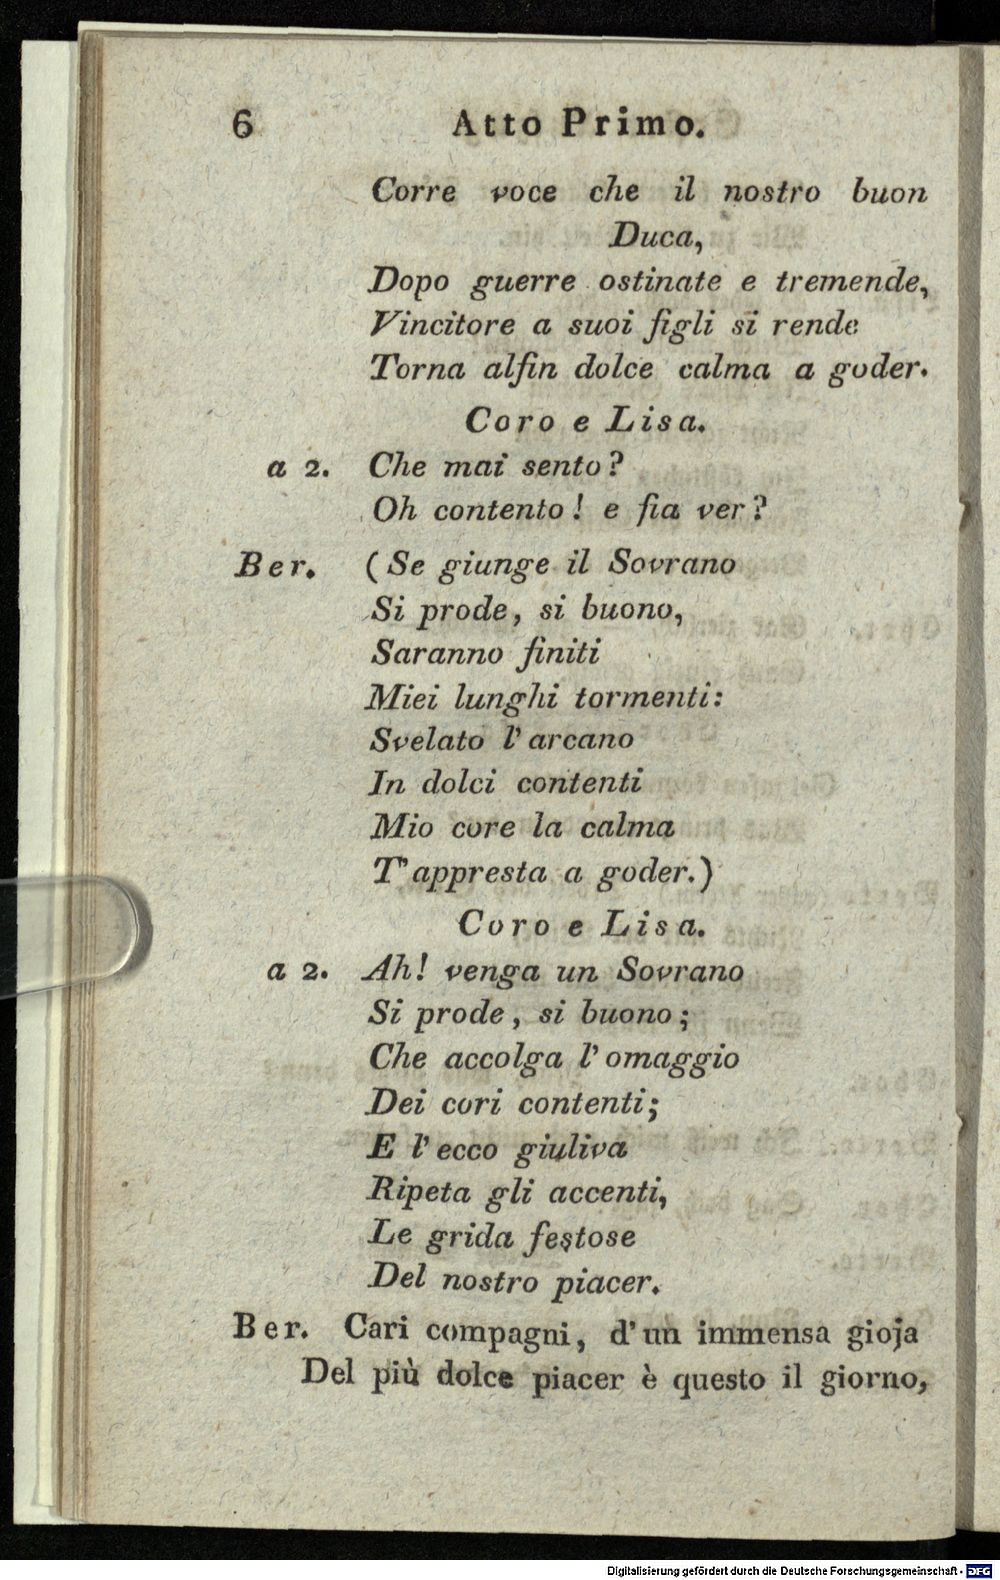 6 Atto Primo.
Corre voce che il nostro buon
Duca,
Dopo guerre ostinate e tremende,
Vincitore a suoi figli si rende
Torna alfin dolce calma a goder.
Coro e Lisa.
a 2. Che mai sento?
Oh contento! e fia ver?
Ber. (Se giunge il Sovrano
Si prode, si buono,
Saranno finiti
Miei lunghi tormenti:
Svelato l'arcano
In dolci contenti
Mio core la calma
T'appresta a goder.)
Coro e Lisa.
a 2. Ah! venga un Sovrano
Si prode, si buono;
Che accolga l'omaggio
Dei cori contenti;
E l'ecco giuliva
Ripeta gli accenti,
Le grida festose
Del nostro piacer.
Ber. Cari compagni, d'un immensa gioja
Del più dolce piacer è questo il giorno,
Digitalisierung gefördert durch die Deutsche Forschungsgemeinschaft - DFG